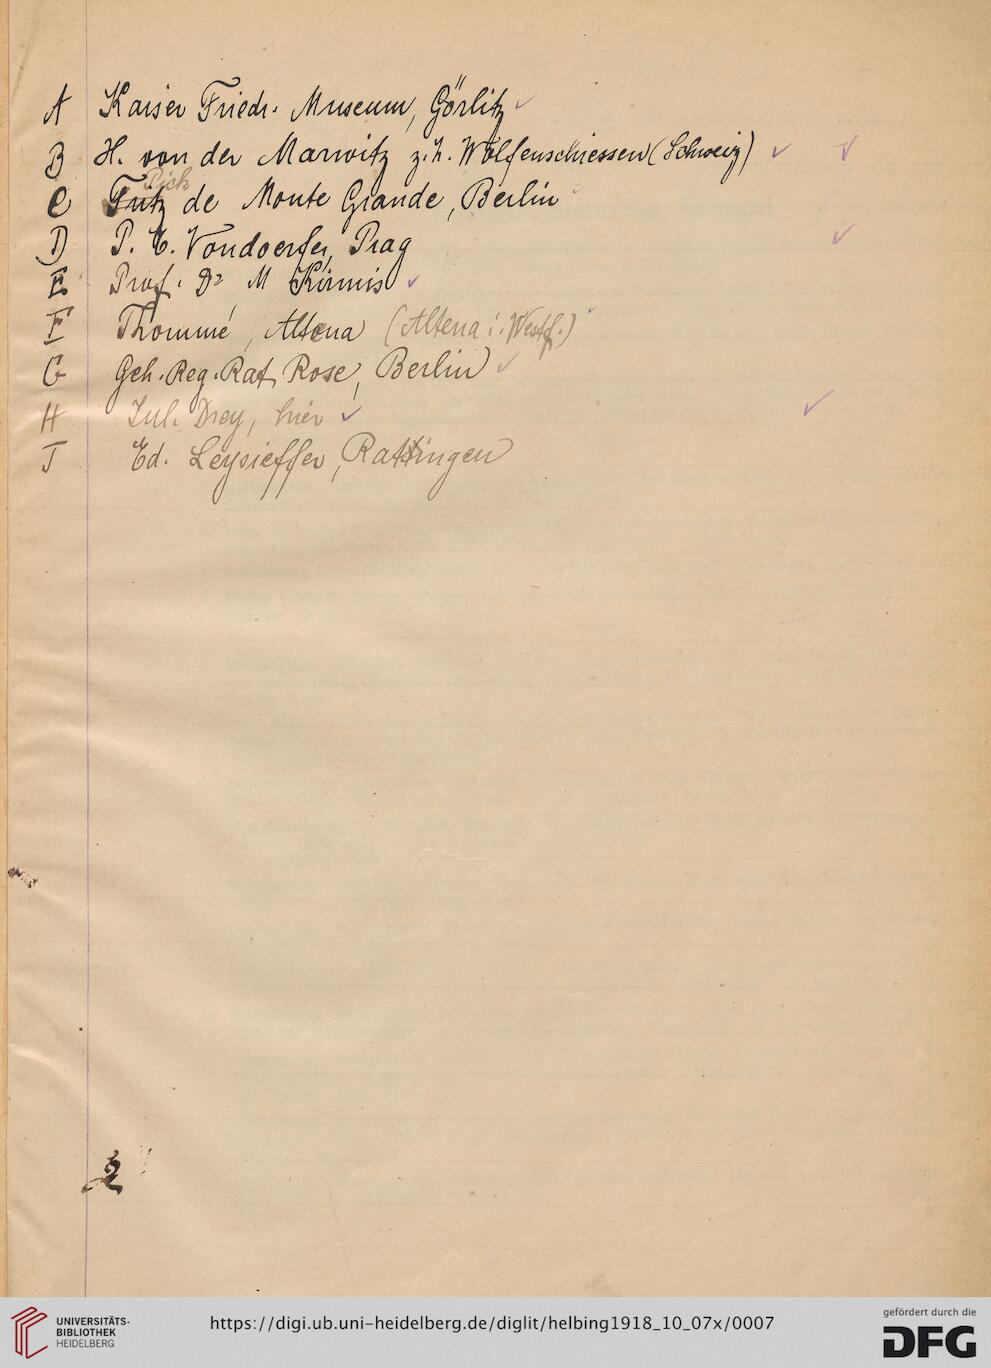 A Kaiser Friedr. Museum, Görlitz
B H. von der Marwitz z. Z. Wolfenschiessen (Schweiz)
Rich
C Fritz de Monte Grande, Berlin
D P. C. Vondoerfer, Prag
E Prof. Dr M Kirmis
F Thommé, Altena (Altena i. Westf.)
G Geh. Reg. Rat Rose, Berlin
H Jul. Drey, hier
J Ed. Leysieffer, Rattingen
UNIVERSITÄTS-
BIBLIOTHEK
HEIDELBERG
https://digi.ub.uni-heidelberg.de/diglit/helbing1918_10_07x/0007
gefördert durch die
DFG